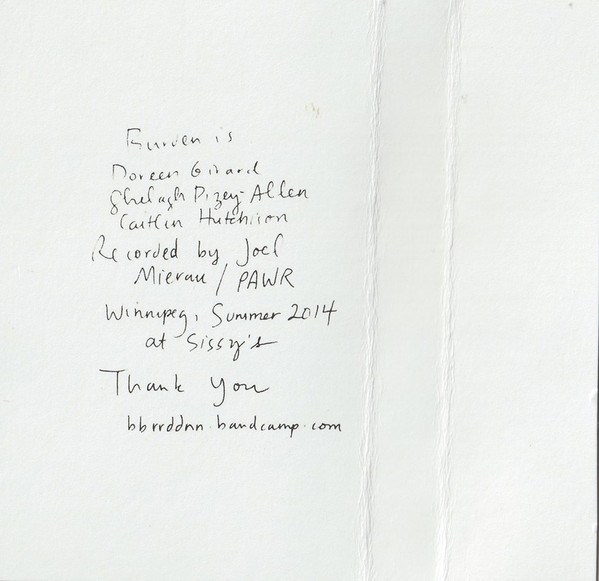 Burden is
Doreen Girard
Shelagh Pizey-Allen
Caitlin Hutchison
Recorded by Joel
Mierau / PAWR
Winnipeg, Summer 2014
at Sissy's
Thank You
bbrrddnn.bandcamp.com